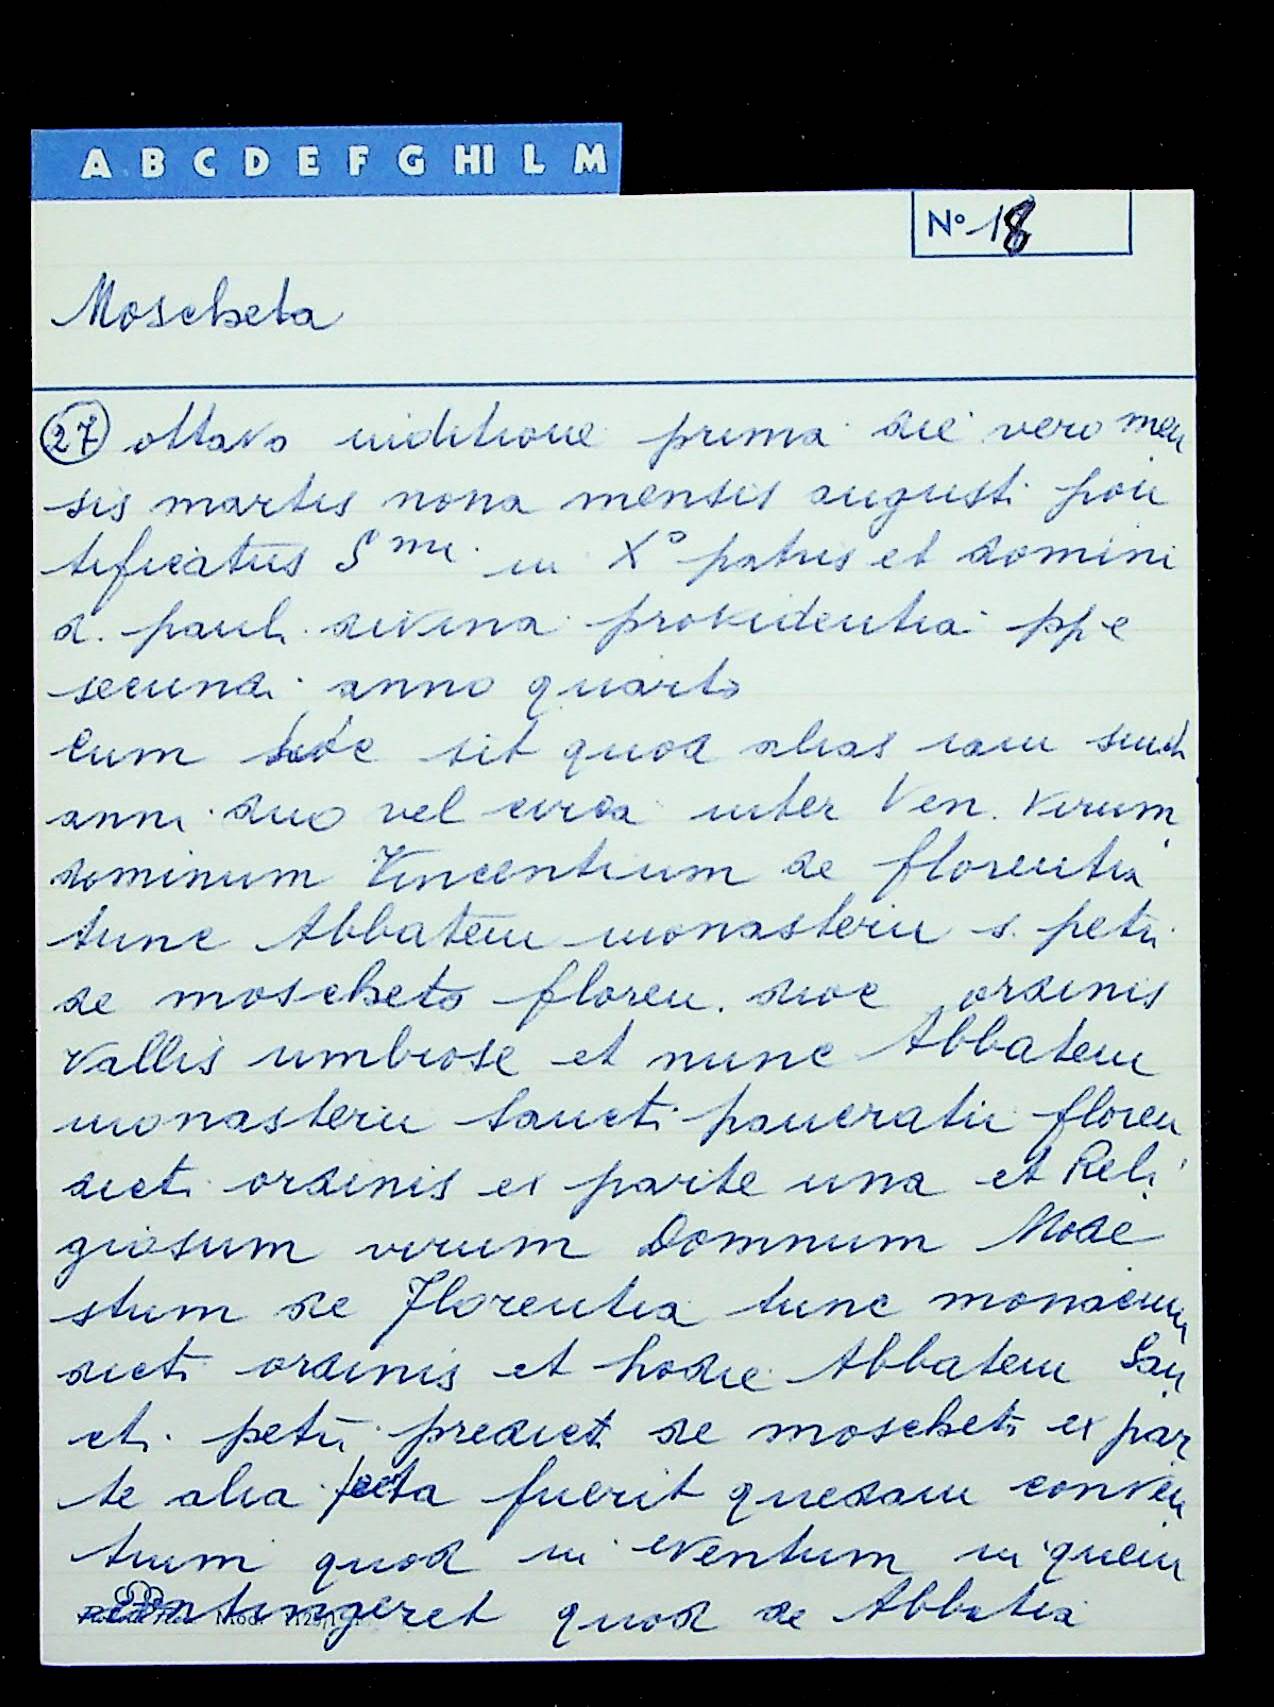 A B C D E F G HI L M
N° 18
Moscheta
27 ottavo inditione prima die vero men
sis martis nona mensis augusti pon
tificatus S mi in X° patris et domini
d. pauli divina providentia pp e
secundi anno quarto
Cum hoc sit quod alias iam sunt
anni duo vel circa inter Ven. Virum
dominum Vincentium de florentia
tunc Abbatem monasterii s. petri
de moscheto floren. dioc ordinis
Vallis umbrose et nunc Abbatem
monasterii Sancti pancratii floren
dicti ordinis ex parte una et Reli
giosum virum Domnum Mode
stum de Florentia tunc monacum
dicti ordinis et hodie Abbatem San
cti petri predicti de moscheto ex par
te alia facta fuerit quedam conven
tium quod in eventum in quem
contingeret quod de Abbatia